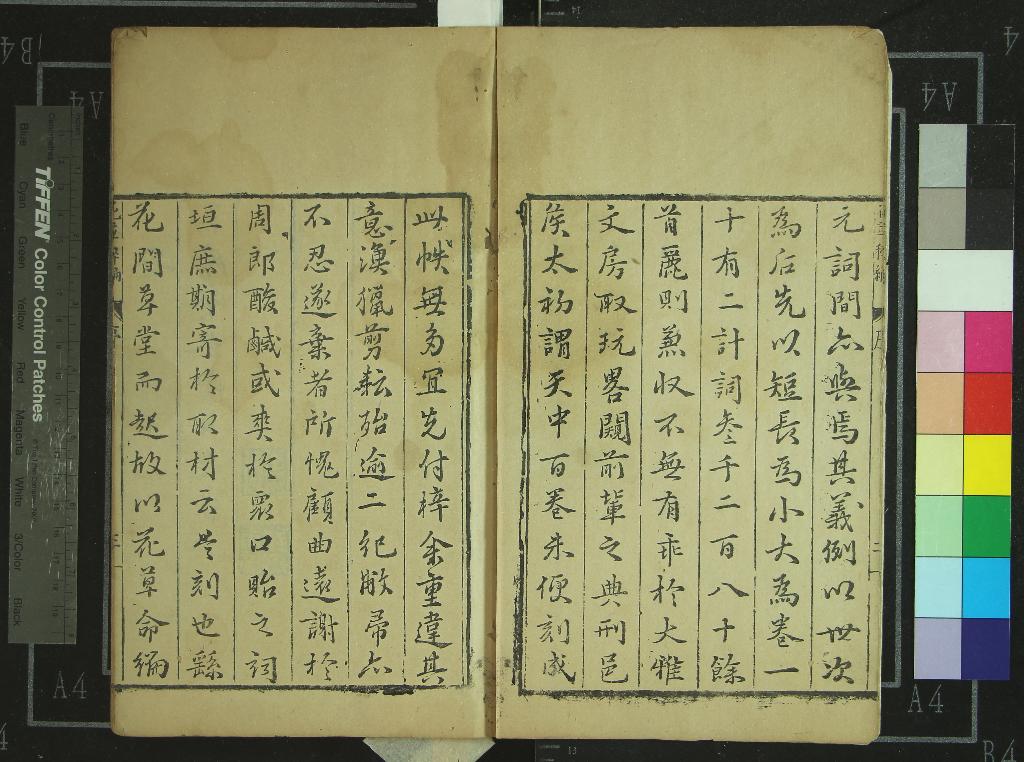 元詞間亦與焉其義例以世次
為后先以短長為小大為卷一
十有二計詞叄千二百八十餘
首麗則兼收不無有乖於大雅
文房取玩畧闚前輩之典刑邑
侯太初謂天中百卷朱便刻成
此帙無多宜先付梓余重違其
意漁獵剪耘殆逾二紀敝帚亦
不忍遂棄者所愧顧曲遠謝於
周郎酸鹹或爽於眾口貽之詞
垣庶期寄於取材云是刻也繇
花間草堂而起故以花草命編
TIFFEN Color Control Patches
Blue
Cyan
Green
Yellow
Red
Magenta
White
3/Color
Black
A4
A4
A4
A4
B4
B4